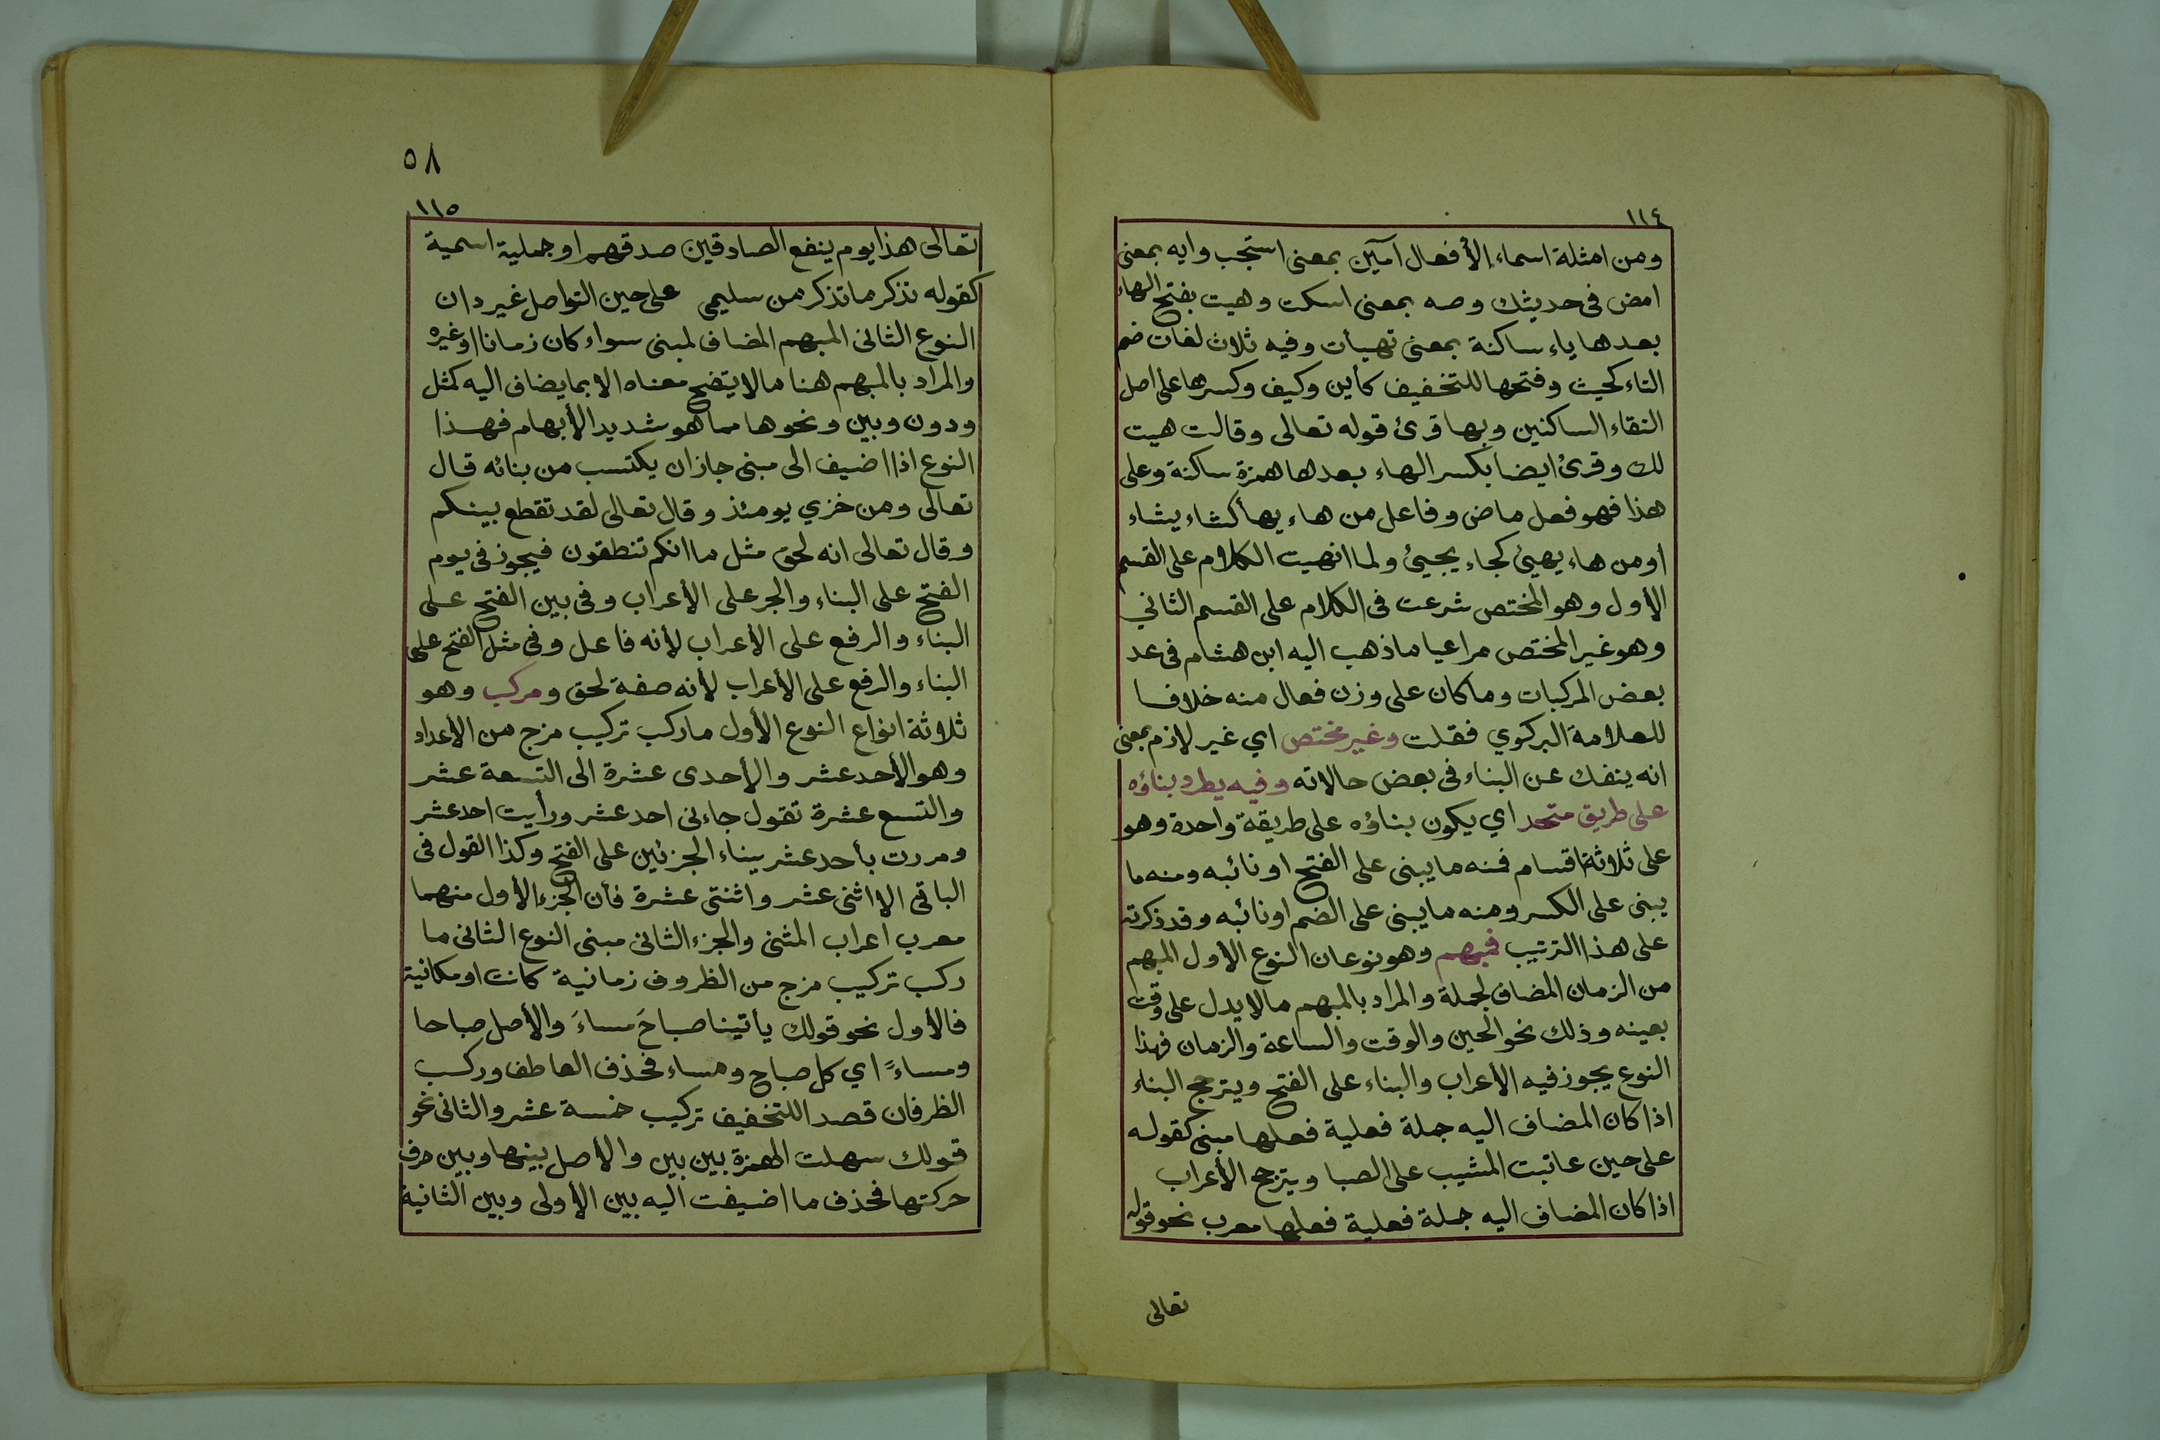 ١١٤
ومن امثلة اسماء الأفعال آمين بمعنى استجب وايه بمعنى
امض فى حديثك وصه بمعنى اسكت وهيت بفتح الهاء
بعدها ياء ساكنة بمعنى تهيأت وفيه ثلاث لغات ضم
التاء كحيث وفتحها للتخفيف كأين وكيف وكسرها على اصل
التقاء الساكنين وبها قرئ قوله تعالى وقالت هيت
لك وقرئ ايضا بكسر الهاء بعدها همزة ساكنة وعلى
هذا فهو فعل ماض وفاعل من هاء يهأ كشاء يشاء
او من هاء يهيئ كجاء يجيئ ولما انهيت الكلام على القسم
الأول وهو المختص شرعت فى الكلام على القسم الثاني
وهو غير المختص مراعيا ما ذهب اليه ابن هشام فى عد
بعض المركبات وما كان على وزن فعال منه خلافا
للعلامة البركوي فقلت وغير مختص اي غير لازم بمعنى
انه ينفك عن البناء فى بعض حالاته وفيه يطرد بناؤه
على طريق متحد اي يكون بناؤه على طريقة واحدة وهو
على ثلاثة اقسام فمنه ما يبنى على الفتح او نائبه ومنه ما
يبنى على الكسر ومنه ما يبنى على الضم او نائبه وقد ذكرته
على هذا الترتيب فمبهم وهو نوعان النوع الاول المبهم
من الزمان المضاف لجملة والمراد بالمبهم مالا يدل على وقت
بعينه وذلك نحو الحين والوقت والساعة والزمان فهذا
النوع يجوز فيه الأعراب والبناء على الفتح ويترجح البناء
اذا كان المضاف اليه جملة فعلية فعلها مبنى كقوله
على حين عاتبت المشيب على الصبا ويترجح الأعراب
اذا كان المضاف اليه جملة فعلية فعلها معرب نحو قوله
تعالى
٥٨
١١٥
تعالى هذا يوم ينفع الصادقين صدقهم او جملية اسمية
كقوله تذكر ما تذكر من سليمى على حين التواصل غير دان
النوع الثانى المبهم المضاف لمبنى سواء كان زمانا او غيره
والمراد بالمبهم هنا مالا يتضح معناه الا بما يضاف اليه كمثل
ودون وبين ونحوها مما هو شديد الأبهام فهذا
النوع اذا اضيف الى مبنى جاز ان يكتسب من بنائه قال
تعالى ومن خزي يومئذ وقال تعالى لقد تقطع بينكم
وقال تعالى انه لحق مثل ما انكم تنطقون فيجوز فى يوم
الفتح على البناء والجر على الأعراب وفى بين الفتح على
البناء والرفع على الأعراب لأنه فاعل وفى مثل الفتح على
البناء والرفع على الأعراب لأنه صفة لحق ومركب وهو
ثلاثة انواع النوع الأول ما ركب تركيب مزج من الأعداد
وهو الأحد عشر والأحدى عشرة الى التسعة عشر
والتسع عشرة تقول جاءنى احد عشر ورأيت احد عشر
ومررت بأحد عشر ببناء الجزئين على الفتح وكذا القول فى
الباقى الا اثنى عشر واثنتى عشرة فأن الجزء الأول منهما
معرب اعراب المثنى والجزء الثانى مبنى النوع الثانى ما
ركب تركيب مزج من الظروف زمانية كانت او مكانية
فالأول نحو قولك يأتينا صباحَ مساءَ والأصل صباحا
ومساءً اي كل صباح ومساء فحذف العاطف وركب
الظرفان قصد اللتخفيف تركيب خمسة عشر والثانى نحو
قولك سهلت الهمزة بين بين والاصل بينها وبين حرف
حركتها فحذف ما اضيفت اليه بين الأولى وبين الثانية